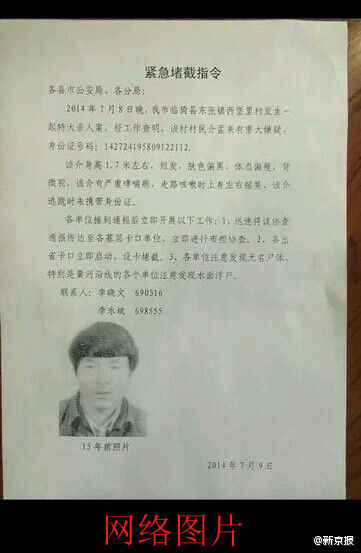 紧急堵截指令
各县市公安局、各分局:
2014年7月8日晚,我市临猗县东张镇西堡里村发生一
起特大杀人案,经工作查明,该村村民介孟来有重大嫌疑,
身份证号码:142724195809122112。
该介身高1.7米左右,短发,肤色偏黑,体态偏瘦,背
微驼,该介有严重哮喘病,走路咳嗽时上身左右摇晃,该介
逃跑时未携带身份证。
各单位接到通报后立即开展以下工作:1、迅速将该协查
通报传达至各基层卡口单位,立即进行布控协查。2、各出
省卡口立即启动,设卡堵截。3、各单位注意发现无名尸体,
特别是黄河沿线的各个单位注意发现水面浮尸。
联系人:李晓文 690316
李永斌 698555
15年前照片
2014年7月9日
网络图片
@新京报